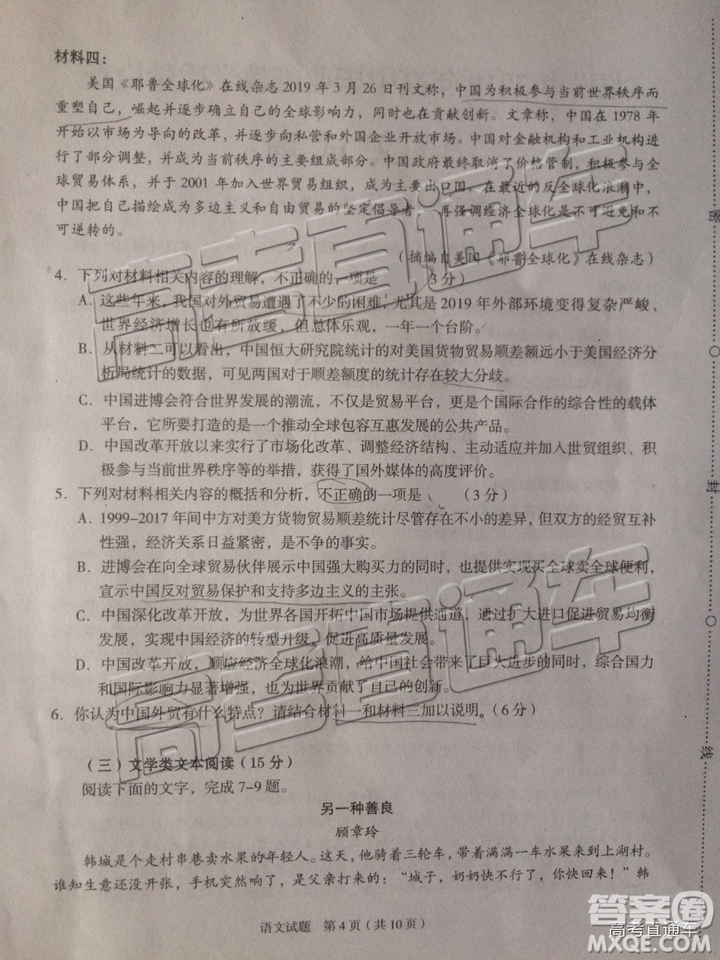 材料四：
美国《耶鲁全球化》在线杂志 2019 年 3 月 26 日刊文称，中国为积极参与当前世界秩序而
重塑自己，崛起并逐步确立自己的全球影响力，同时也在贡献创新。文章称，中国在 1978 年
开始以市场为导向的改革，并逐步向私营和外国企业开放市场。中国对金融机构和工业机构进
行了部分调整，并成为当前秩序的主要组成部分。中国政府最终取消了价格管制，积极参与全
球贸易体系，并于 2001 年加入世界贸易组织，成为主要出口国。在最近的反全球化浪潮中，
中国把自己描绘成为多边主义和自由贸易的坚定倡导者，再强调经济全球化是不可避免和不
可逆转的。
（摘编自美国《耶鲁全球化》在线杂志）
4．下列对材料相关内容的理解，不正确的一项是（3 分）
A．这些年来，我国对外贸易遭遇了不少的困难，尤其是 2019 年外部环境变得复杂严峻、
世界经济增长回有所放缓，但总体乐观，一年一个台阶。
B．从材料二可以看出，中国恒大研究院统计的对美国货物贸易顺差额远小于美国经济分
析局统计的数据，可见两国对于顺差额度的统计存在较大分歧。
C．中国进博会符合世界发展的潮流，不仅是贸易平台，更是个国际合作的综合性的载体
平台，它所要打造的是一个推动全球包容互惠发展的公共产品。
D．中国改革开放以来实行了市场化改革、调整经济结构、主动适应并加入世贸组织、积
极参与当前世界秩序等的举措，获得了国外媒体的高度评价。
5．下列对材料相关内容的概括和分析，不正确的一项是（ （3 分）
A．1999-2017 年间中方对美方货物贸易顺差统计尽管存在不小的差异，但双方的经贸互补
性强，经济关系日益紧密，是不争的事实。
B．进博会在向全球贸易伙伴展示中国强大购买力的同时，也能实现买全球卖全球便利，
宣示中国反对贸易保护和支持多边主义的主张。
C．中国深化改革开放，为世界各国开拓中国市场提供通道，通过扩大进口促进贸易均衡
发展，实现中国经济的转型升级，促进高质量发展。
D．中国改革开放，顺应经济全球化浪潮，给中国社会带来了巨大进步的同时，综合国力
和国际影响力显著增强，也为世界贡献了自己的创新。
6．你认为中国外贸有什么特点？请结合材料一和材料三加以说明。（6 分）
（三）文学类文本阅读（15 分）
阅读下面的文字，完成 7-9 题。
另一种善良
顾章玲
韩城是个走村串巷卖水果的年轻人。这天，他骑着三轮车，带着满满一车水果来到上湖村。
谁知生意还没开张，手机突然响了，是父亲打来的：“城子，奶奶快不行了，你快回来！”韩
语文试题 第 4 页（共 10 页）
密
封
线
高考直通车
高考直通车
高考直通车
答案圈
MXQE.COM